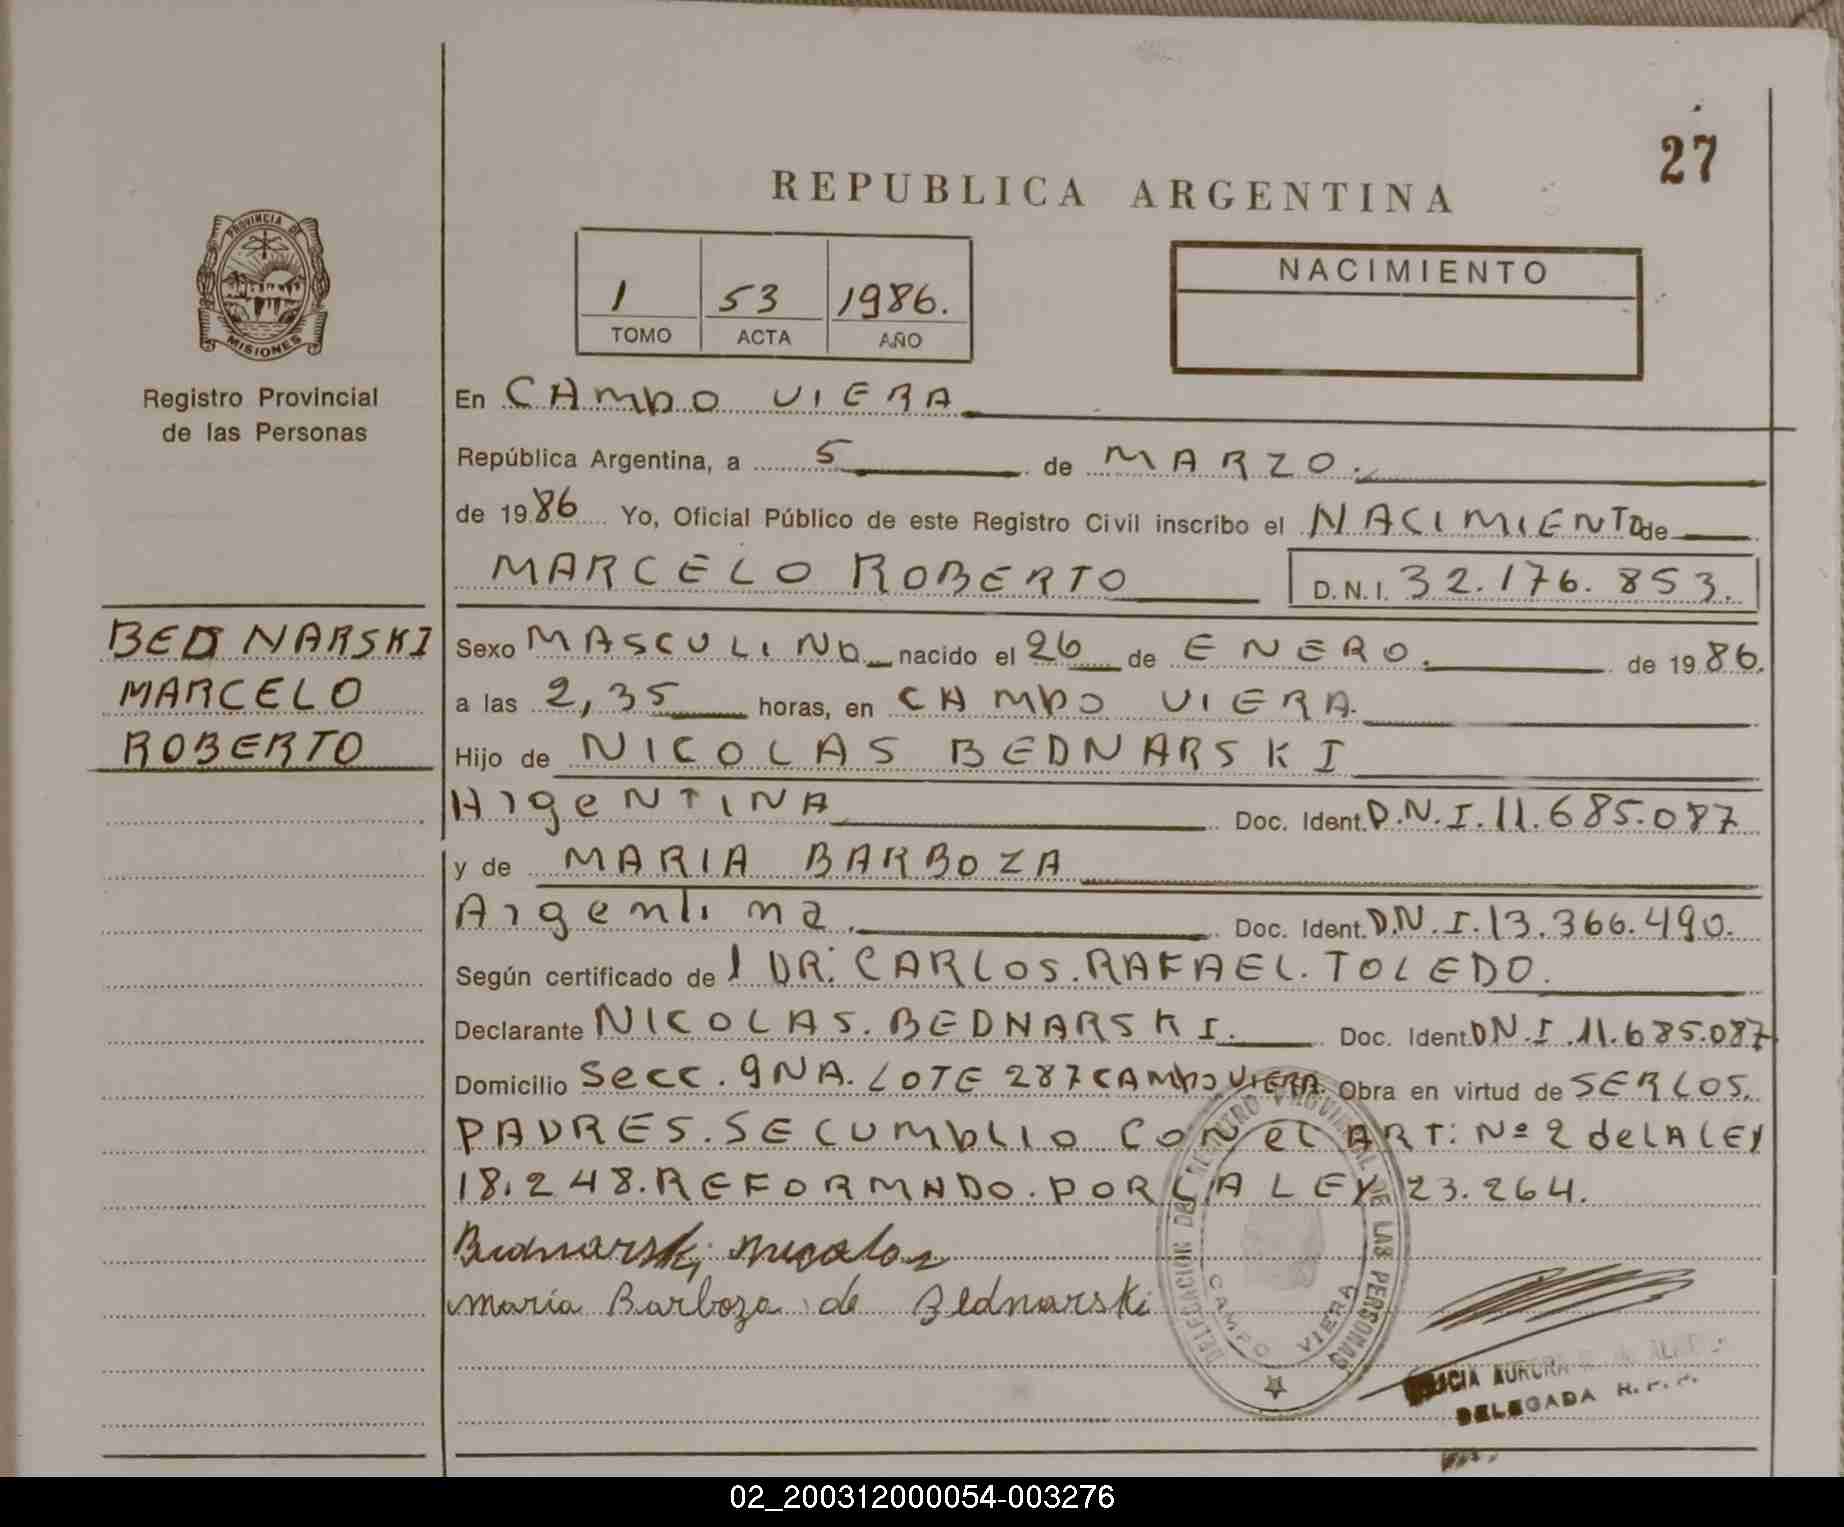 27
REPUBLICA ARGENTINA
PROVINCIA DE
MISIONES
1 53 1986.
TOMO ACTA AÑO
NACIMIENTO
Registro Provincial
de las Personas
En CAMPO VIERA
República Argentina, a 5 de MARZO.
de 1986 Yo, Oficial Público de este Registro Civil inscribo el NACIMIENTO de
MARCELO ROBERTO D.N.I. 32.176.853.
BEDNARSKI
MARCELO
ROBERTO
Sexo MASCULINO nacido el 26 de ENERO. de 1986.
a las 2,35 horas, en CAMPO VIERA.
Hijo de NICOLAS BEDNARSKI
ArgeNTINA Doc. Ident. D.N.I. 11.685.087
y de MARIA BARBOZA
Argentina. Doc. Ident. D.N.I. 13.366.490.
Según certificado de l DR. CARLOS. RAFAEL. TOLEDO.
Declarante NICOLAS. BEDNARSKI. Doc. Ident. DN.I. 11.685.087
Domicilio Secc. 9NA. LOTE 287 CAMPO VIERA. Obra en virtud de SER LOS.
PADRES. SE CUMPLIO CON el ART: Nº 2 de LA LEY
18.248. REFORMADO. POR LA LEY 23.264.
Bednarski nicolas
maria Barboza de Bednarski
DELEGACION DEL REGISTRO PROVINCIAL DE LAS PERSONAS
CAMPO VIERA
AURORA
DELEGADA R. P. P.
02_200312000054-003276